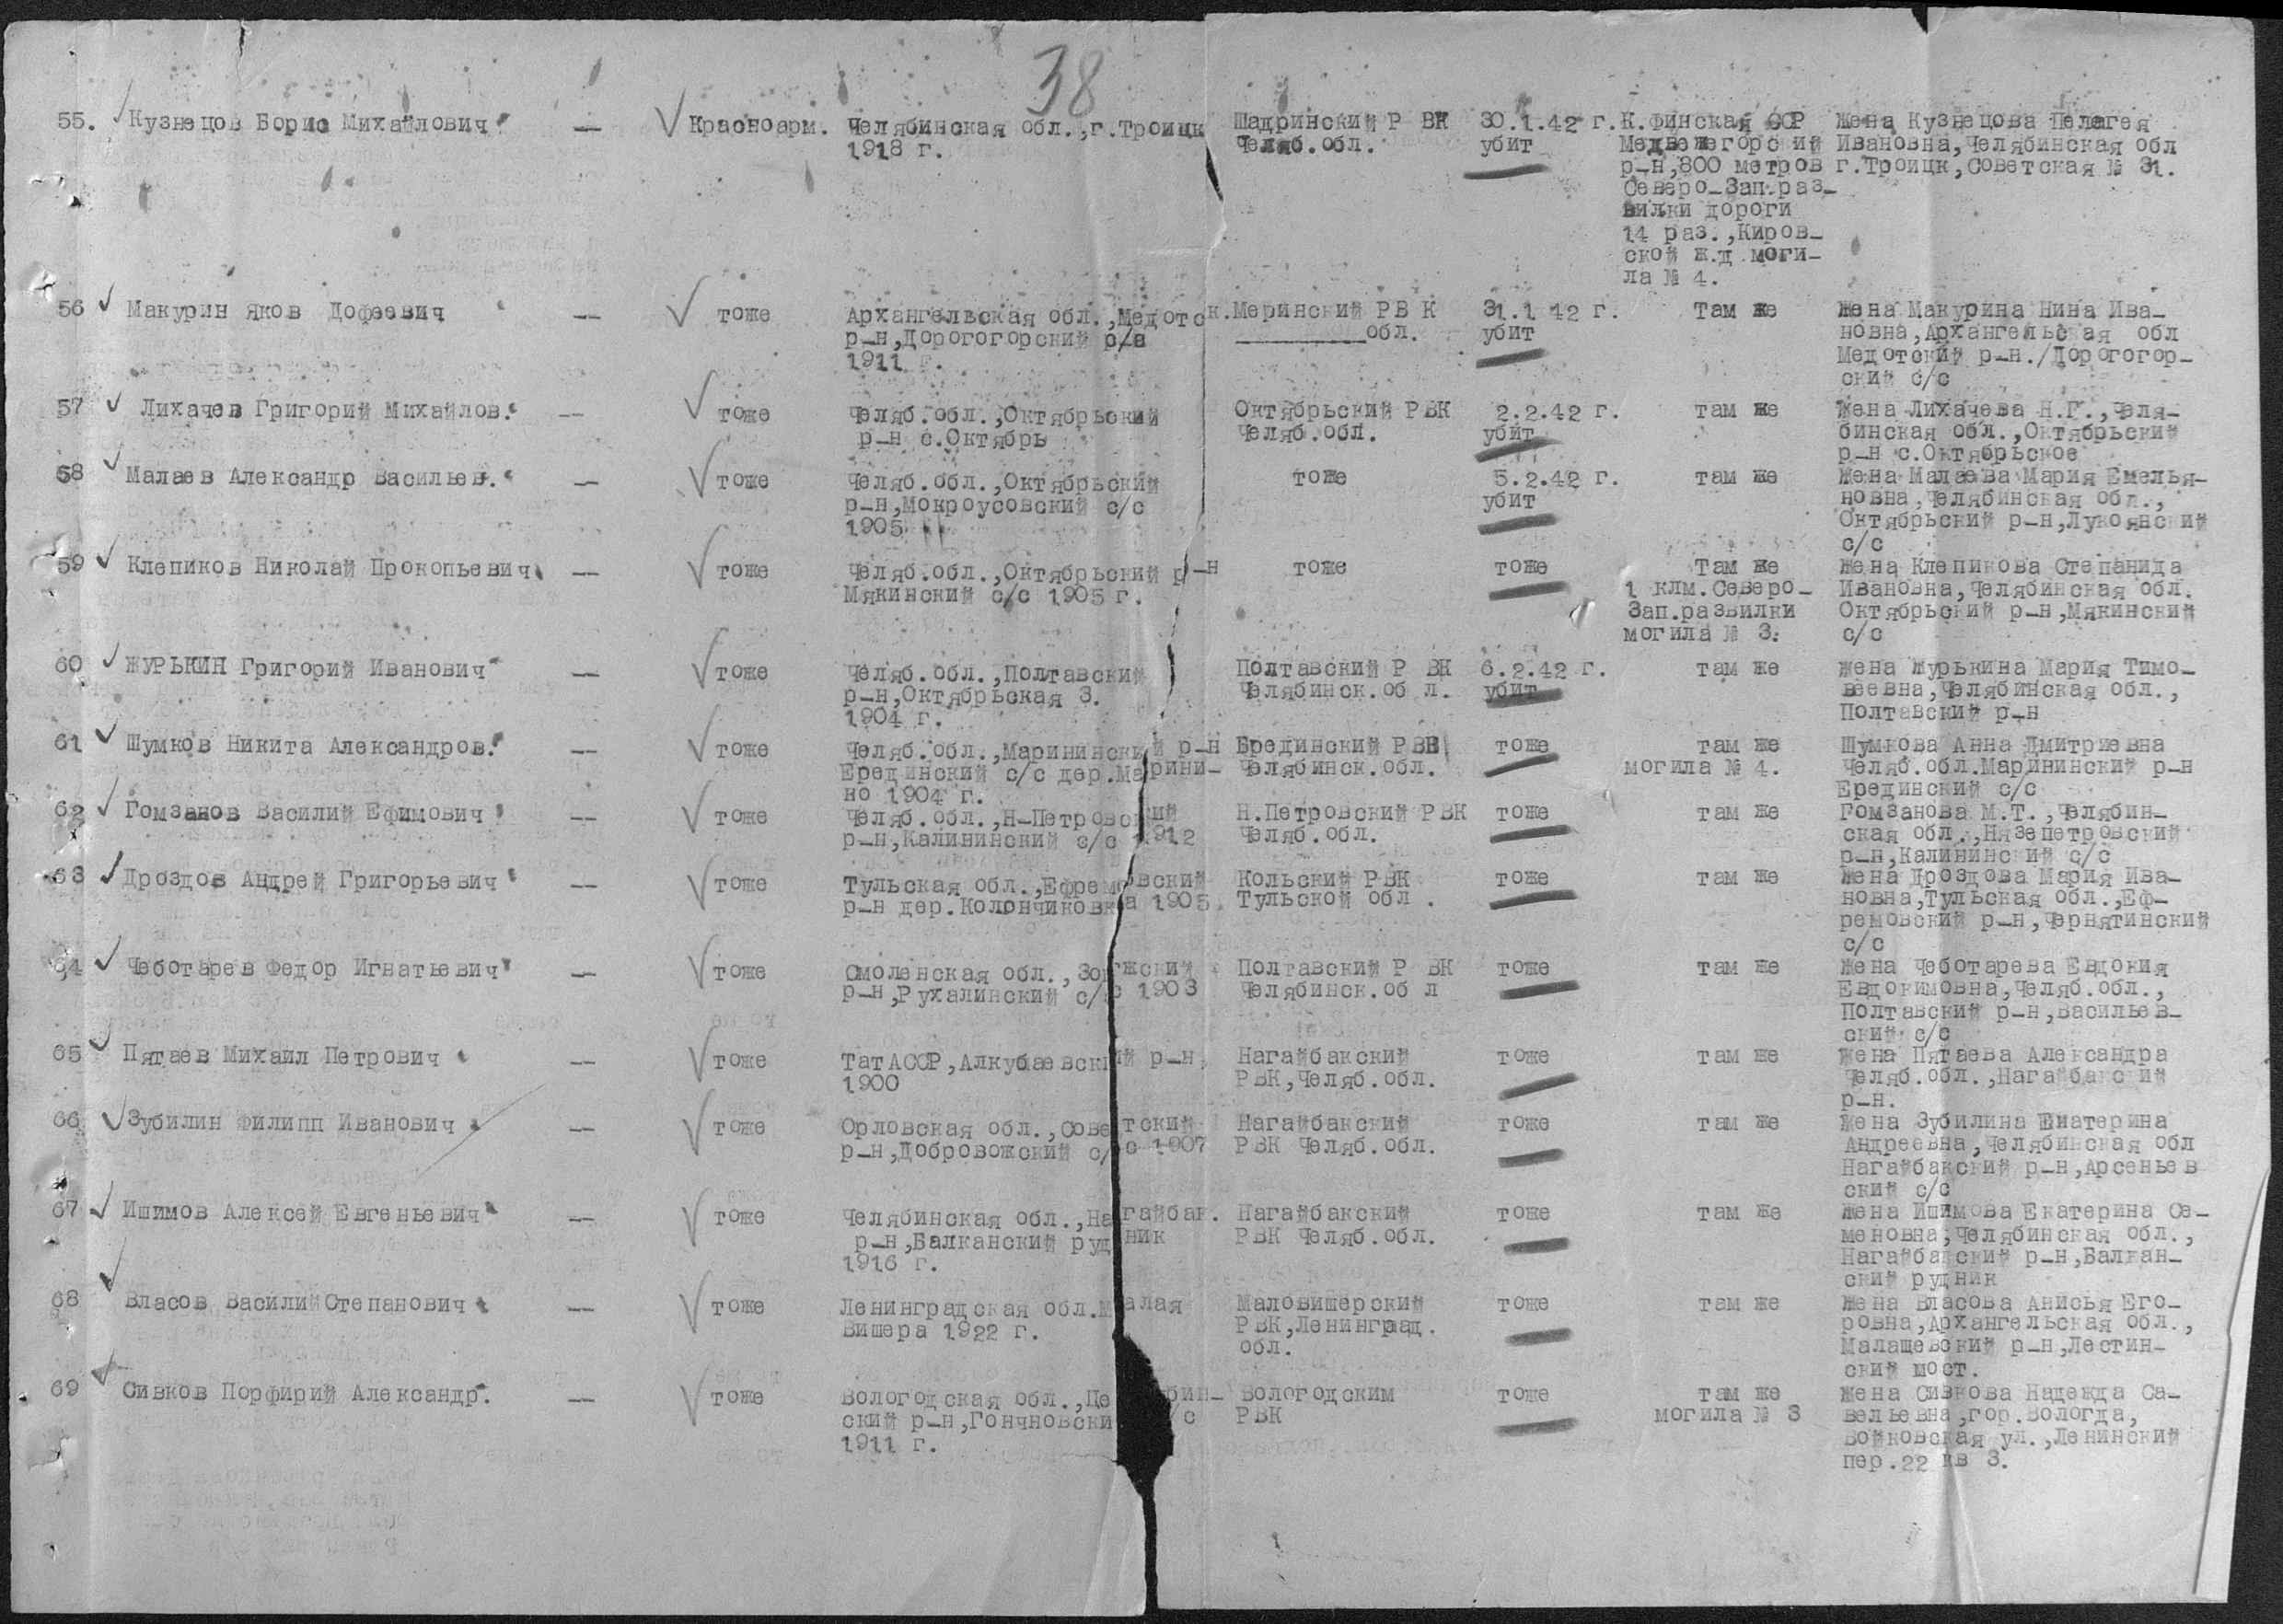 38
55. Кузнецов Борис Михайлович — Красноарм. Челябинская обл.,г.Троицк Шадринский Р ВК 30.1.42 г. К.Финская ССР Жена Кузнецова Пелагея
1918 г. Челяб.обл. убит Медвежегорский Ивановна,Челябинская обл
р-н,800 метров г.Троицк,Советская № 31.
Северо-Зап.раз-
вилки дороги
14 раз.,Киров-
ской ж.д моги-
ла № 4.
56 Макурин Яков Дофеевич — тоже Архангельская обл.,Медотск. Меринский РВ К 31.1 42 г. Там же Жена Макурина Нина Ива-
р-н,Дорогогорский с/с обл. убит новна,Архангельская обл
1911 г. Медотский р-н./Дорогогор-
ский с/с
57 Лихачев Григорий Михайлов. — тоже Челяб.обл.,Октябрьский Октябрьский РВК 2.2.42 г. там же Жена Лихачева Н.Г.,Челя-
р-н с.Октябрь Челяб.обл. убит бинская обл.,Октябрьский
р-н с.Октябрьское
58 Малаев Александр Васильев. — тоже Челяб.обл.,Октябрьский тоже 5.2.42 г. там же Жена Малаева Мария Емелья-
р-н,Мокроусовский с/с убит новна,Челябинская обл.,
1905 Октябрьский р-н,Лукоянский
с/с
59 Клепиков Николай Прокопьевич — тоже Челяб.обл.,Октябрьский р-н тоже тоже Там же Жена Клепикова Степанида
Мякинский с/с 1905 г. 1 клм.Северо- Ивановна,Челябинская обл.
Зап.развилки Октябрьский р-н,Мякинский
могила № 3. с/с
60 ЖУРЬКИН Григорий Иванович — тоже Челяб.обл.,Полтавский Полтавский Р ВК 6.2.42 г. там же Жена Журькина Мария Тимо-
р-н,Октябрьская 3. Челябинск.об л. убит веевна,Челябинская обл.,
1904 г. Полтавский р-н
61 Шумков Никита Александров. — тоже Челяб.обл.,Марининский р-н Брединский РВК тоже там же Шумкова Анна Дмитриевна
Ерединский с/с дер.Марини- Челябинск.обл. могила № 4. Челяб.обл.Марининский р-н
но 1904 г. Ерединский с/с
62 Гомзанов Василий Ефимович — тоже Челяб.обл.,Н-Петровский Н.Петровский РВК тоже там же Гомзанова М.Т.,Челябин-
р-н,Калининский с/с 1912 Челяб.обл. ская обл.,Нязепетровский
р-н,Калининский с/с
63 Дроздов Андрей Григорьевич — тоже Тульская обл.,Ефремовский Кольский РВК тоже там же Жена Дроздова Мария Ива-
р-н дер.Колончиковка 1905. Тульской обл . новна,Тульская обл.,Еф-
ремовский р-н,Чернятинский
с/с
64 Чеботарев Федор Игнатьевич — тоже Смоленская обл., Полтавский Р ВК тоже там же Жена Чеботарева Евдокия
р-н,Рухалинский с/с 1903 Челябинск.об л Евдокимовна,Челяб.обл.,
Полтавский р-н,Васильев-
ский с/с
65 Пятаев Михаил Петрович — тоже ТатАССР,Алкубаевский р-н, Нагайбакский тоже там же Жена Пятаева Александра
1900 РВК,Челяб.обл. Челяб.обл.,Нагайбакский
р-н.
66 Зубилин Филипп Иванович — тоже Орловская обл.,Советский Нагайбакский тоже там же Жена Зубилина Екатерина
р-н,Добровожский с/с 1907 РВК Челяб.обл. Андреевна,Челябинская обл
Нагайбакский р-н,Арсеньев
ский с/с
67 Ишимов Алексей Евгеньевич — тоже Челябинская обл.,Нагайбак. Нагайбакский тоже там же Жена Ишимова Екатерина Се-
р-н,Балканский рудник РВК Челяб.обл. меновна,Челябинская обл.,
1916 г. Нагайбакский р-н,Балкан-
ский рудник
68 Власов Василий Степанович — тоже Ленинградская обл.Малая Маловишерский тоже там же Жена Власова Анисья Его-
Вишера 1922 г. РВК,Ленинград. ровна,Архангельская обл.,
обл. Малащевский р-н,Лестин-
ский мост.
69 Сивков Порфирий Александр. — тоже Вологодская обл., Вологодским тоже там же Жена Сивкова Надежда Са-
ский р-н,Гончновский с/с РВК могила № 3 вельевна,гор.Вологда,
1911 г. Войковская ул.,Ленинский
пер.22 кв 3.